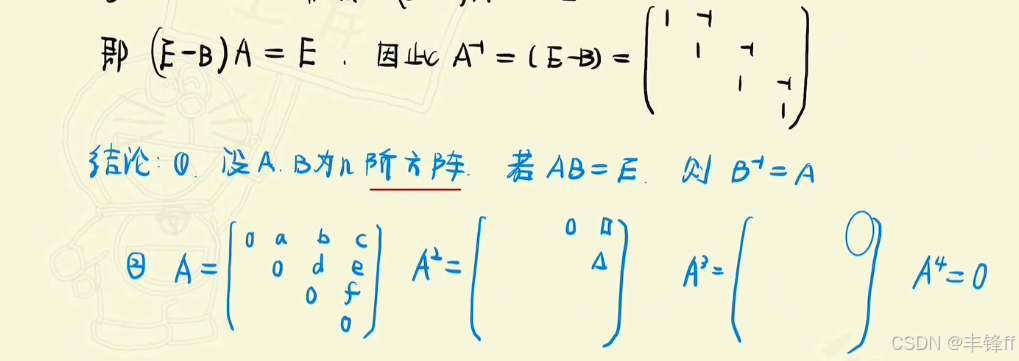 即 (E-B)A = E . 因此 A⁻¹ = (E-B) = ( 1 -1 
1 -1 
1 -1 
1 )
结论: ①. 设A.B为n阶方阵. 若 AB=E. 则 B⁻¹=A
② A = ( 0 a b c 
0 d e 
0 f 
0 ) A² = ( 0 □ 
Δ ) A³ = ( ○ ) A⁴=0
CSDN @丰锋ff